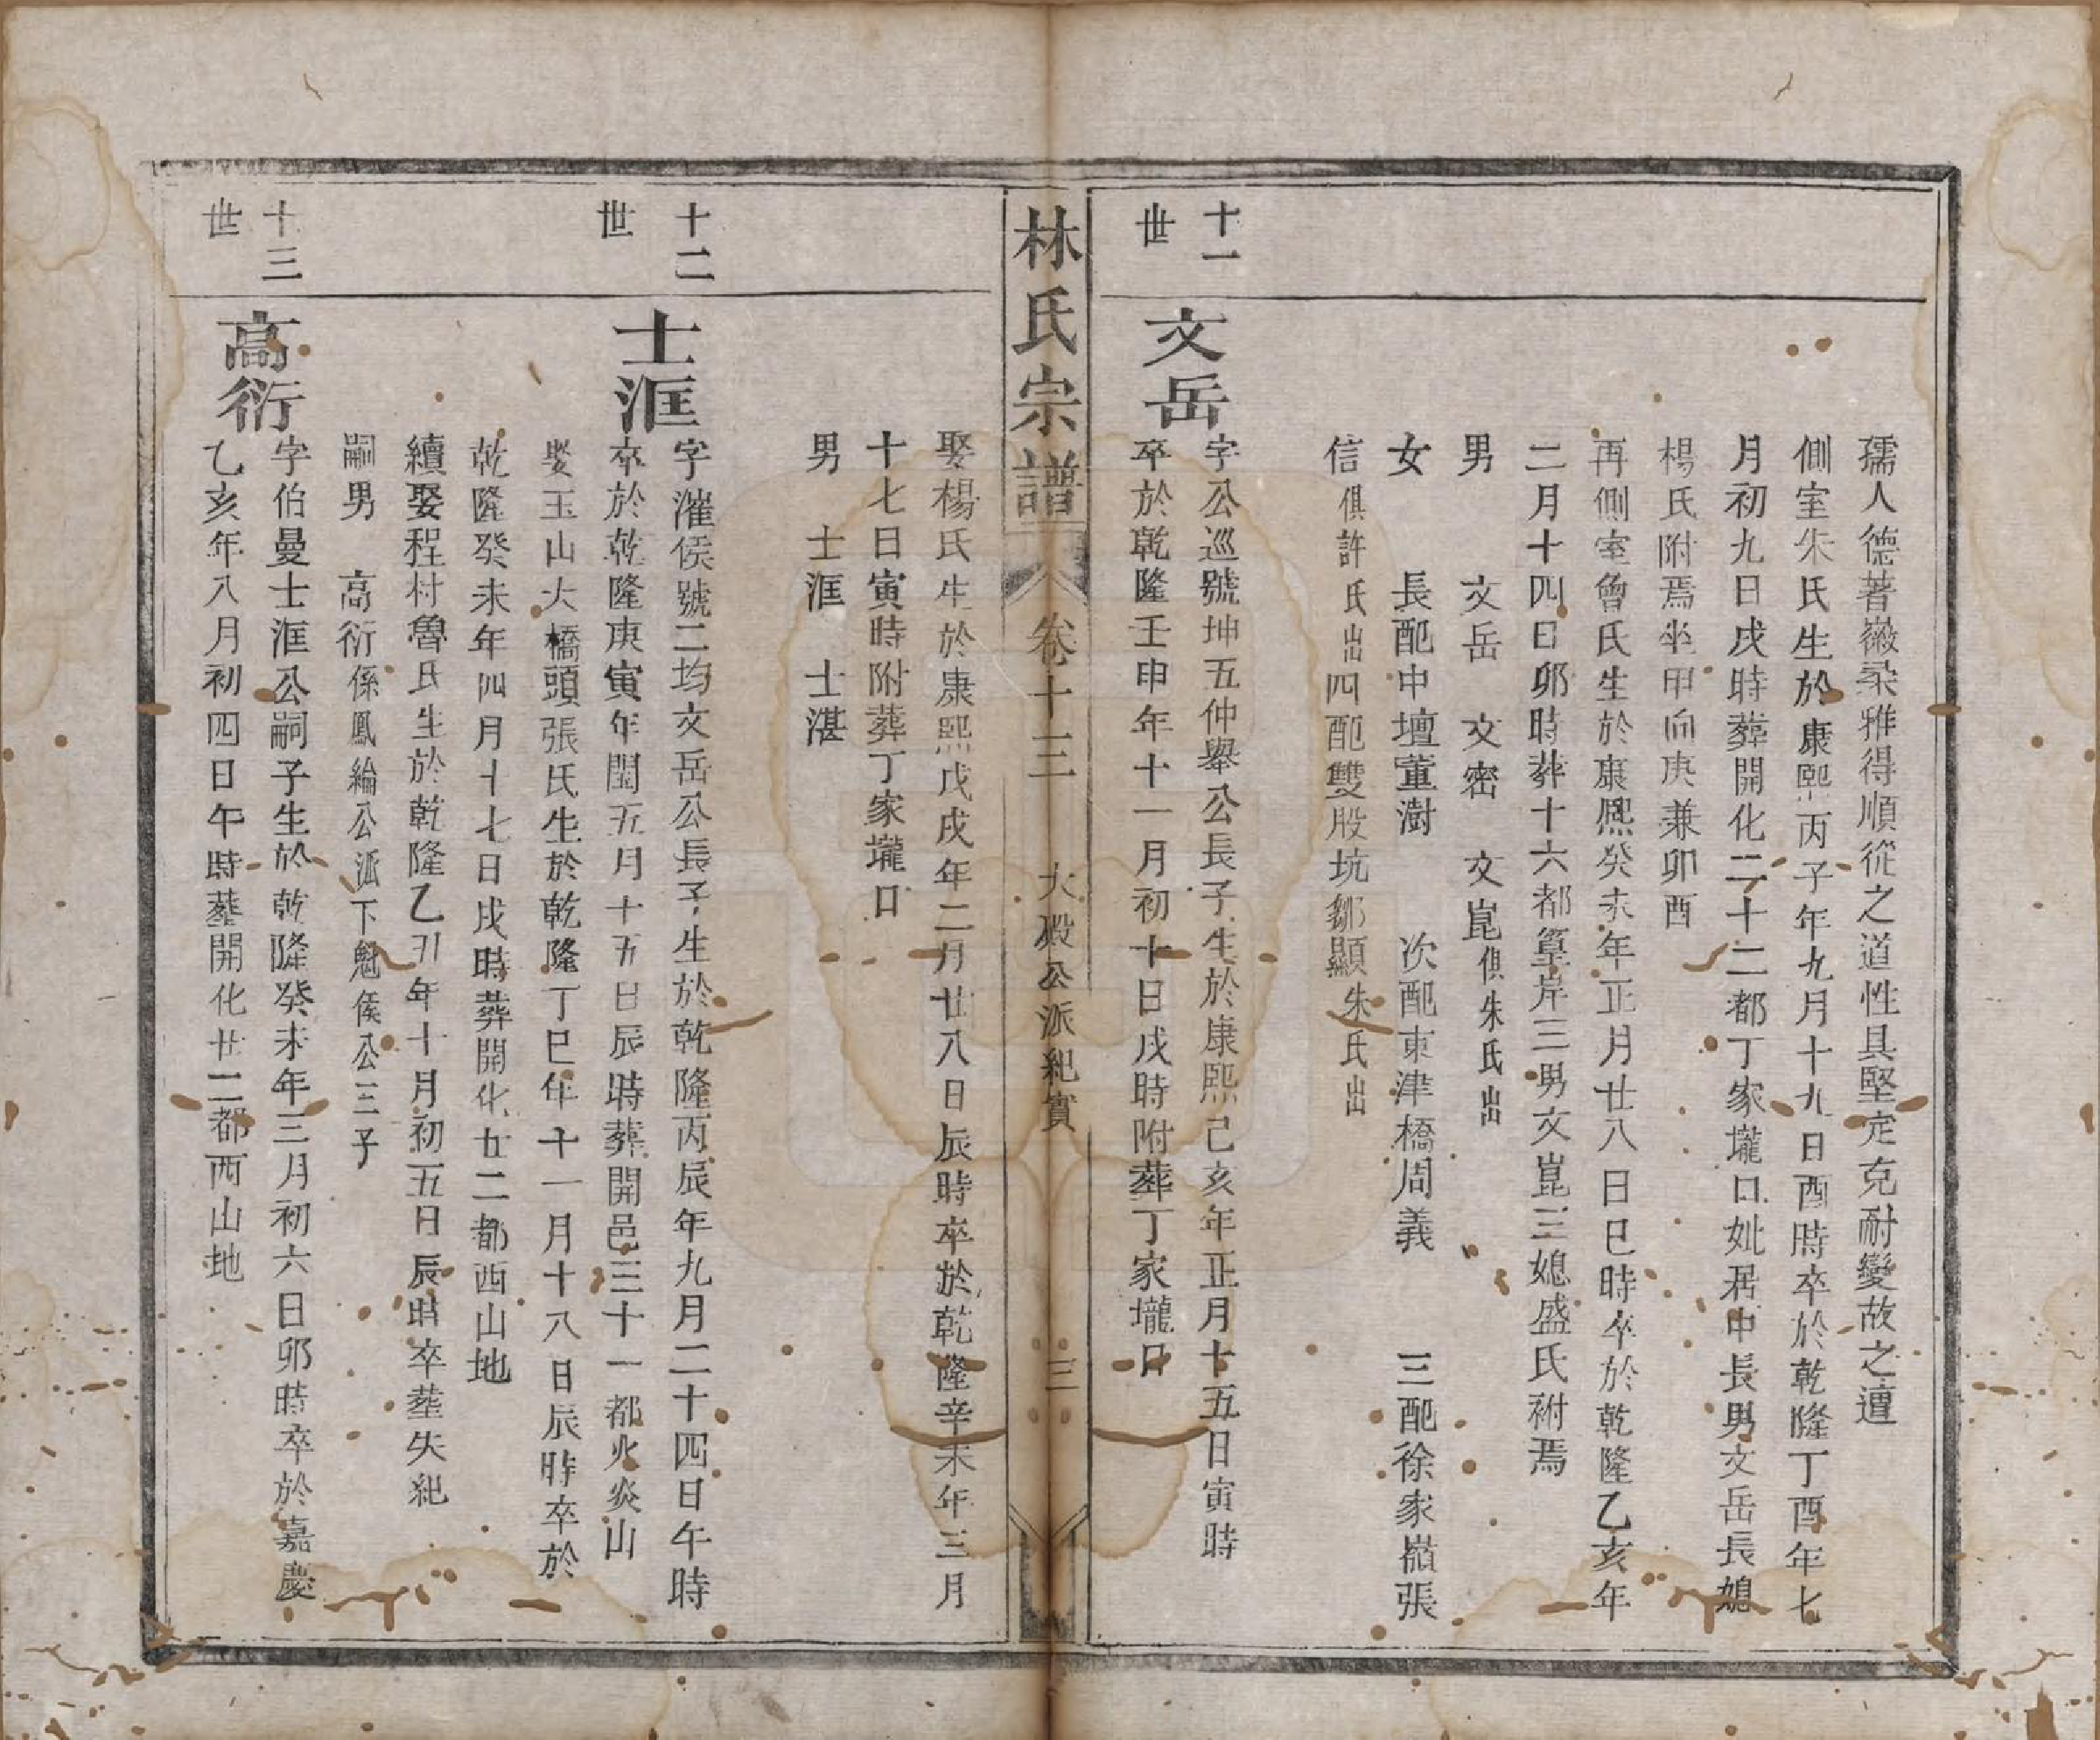 孺人德著嶶柔雅得順從之道性具堅定克耐變故之邅
側室朱氏生於康熙丙子年九月十九日酉時卒於乾隆丁酉年七
月初九日戌時葬開化二十二都丁家壠口妣居中長男文岳長媳
楊氏附焉坐甲向庚兼卯酉
再側室曾氏生於康熈癸未年正月廿八日巳時卒於乾隆乙亥年
二月十四日卯時葬十六都篁岸三男文崑三媳盛氏祔焉
男 文岳 文密 文崑俱朱氏出
女 長配中壇董澍 次配東津橋周義 三配徐家嶺張
信俱許氏出四配雙股坑鄒顯朱氏出
十一世
文岳
字公巡號坤五仲舉公長子生於康熙己亥年正月十五日寅時
卒於乾隆壬申年十一月初十日戌時附葬丁家壠口
林氏宗譜 卷十二 大殿公派紀實 三
娶楊氏生於康熙戊戌年二月廿八日辰時卒於乾隆辛未年三月
十七日寅時附葬丁家壠口
男 士滙 士湛
十二世
士滙
字漼侯號二均文岳公長子生於乾隆丙辰年九月二十四日午時
卒於乾隆庚寅年閏五月十五日辰時葬開邑三十一都火炎山
娶玉山大橋頭張氏生於乾隆丁巳年十一月十八日辰時卒於
乾隆癸未年四月十七日戌時葬開化廿二都西山地
續娶程村魯氏生於乾隆乙丑年十月初五日辰時卒塟失紀
嗣男 高衍係鳳綸公派下魁侯公三子
十三世
高衍
字伯曼士滙公嗣子生於乾隆癸未年三月初六日卯時卒於嘉慶
乙亥年八月初四日午時塟開化廿二都西山地